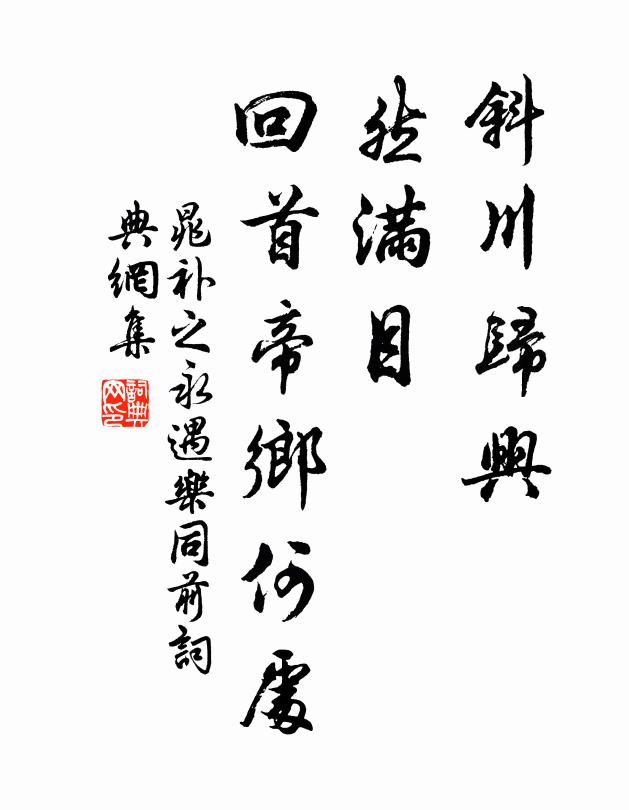 斜川歸興
然滿目
回首帝鄉何處
晁補之永遇樂同前詞
典網集
詞典網印